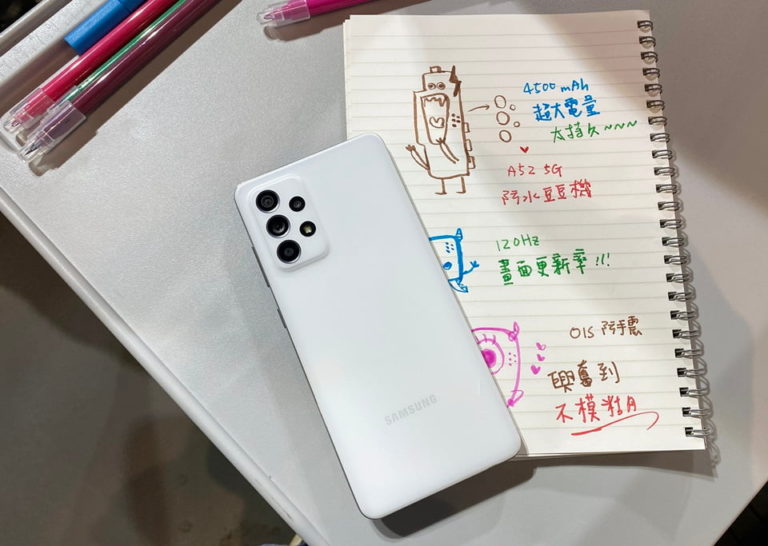 4500 mAh
超大電量
太持久~~~
A52 5G
防水豆豆機
120Hz
畫面更新率!!!
OIS 防手震
興奮到
不模糊
SAMSUNG